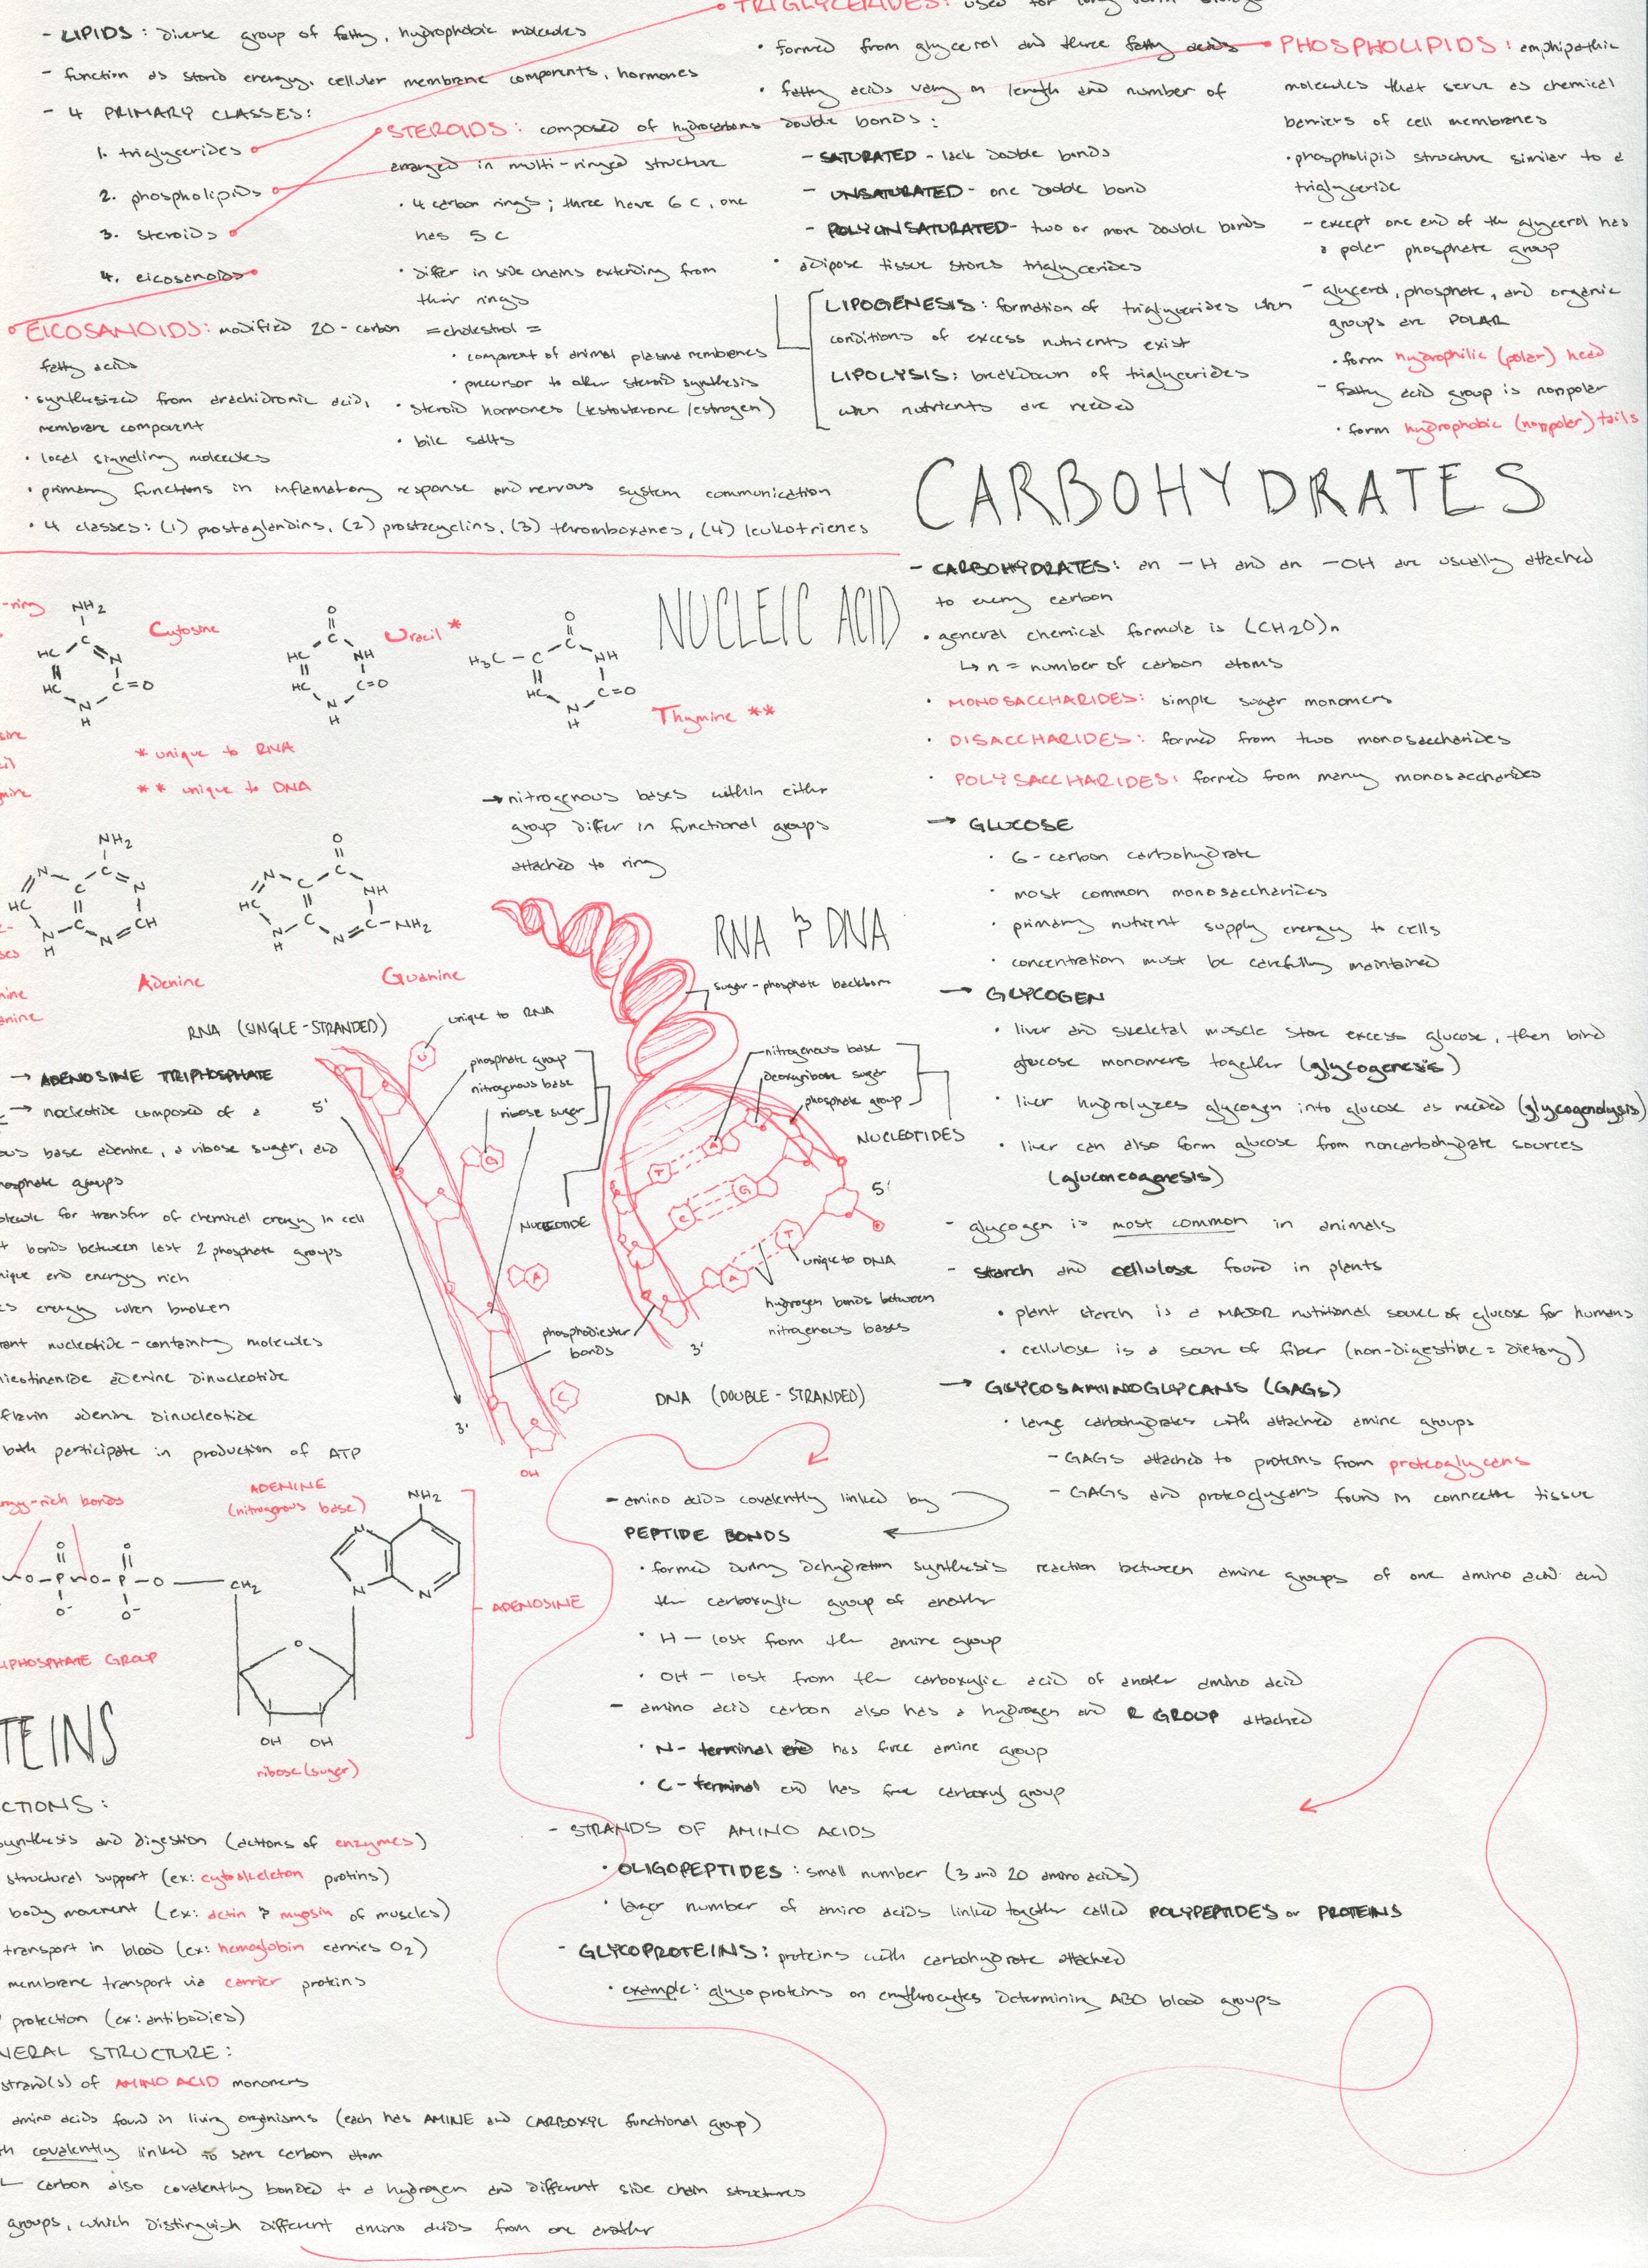 TRIGLYCERIDES: used for long term energy
- LIPIDS: diverse group of fatty, hydrophobic molecules
- function as stored energy, cellular membrane components, hormones
- 4 PRIMARY CLASSES:
1. triglycerides
2. phospholipids
3. steroids
4. eicosanoids
STEROIDS: composed of hydrocarbons
arranged in multi-ringed structure
• 4 carbon rings; three have 6 C, one
has 5 C
• differ in side chains extending from
their rings
=cholestrol =
• component of animal plasma membranes
• precursor to other steroid synthesis
• steroid hormones (testosterone/estrogen)
• bile salts
• formed from glycerol and three fatty acids
• fatty acids vary in length and number of
double bonds:
- SATURATED - lack double bonds
- UNSATURATED - one double bond
- POLYUNSATURATED - two or more double bonds
• adipose tissue stores triglycerides
LIPOGENESIS: formation of triglycerides when
conditions of excess nutrients exist
LIPOLYSIS: breakdown of triglycerides
when nutrients are needed
PHOSPHOLIPIDS: amphipathic
molecules that serve as chemical
barriers of cell membranes
• phospholipid structure similar to a
triglyceride
- except one end of the glycerol has
a polar phosphate group
- glycerol, phosphate, and organic
groups are POLAR
• form hydrophilic (polar) head
- fatty acid group is nonpolar
• form hydrophobic (nonpolar) tails
EICOSANOIDS: modified 20-carbon
fatty acids
• synthesized from arachidronic acid,
membrane component
• local signaling molecules
• primary functions in inflamatory response and nervous system communication
• 4 classes: (1) prostaglandins, (2) prostacyclins, (3) thromboxanes, (4) leukotrienes
CARBOHYDRATES
- CARBOHYDRATES: an -H and an -OH are usually attached
to every carbon
• general chemical formula is (CH2O)n
↳ n = number of carbon atoms
• MONOSACCHARIDES: simple sugar monomers
• DISACCHARIDES: formed from two monosaccharides
• POLYSACCHARIDES: formed from many monosaccharides
→ GLUCOSE
• 6-carbon carbohydrate
• most common monosaccharides
• primary nutrient supply energy to cells
• concentration must be carefully maintained
→ GLYCOGEN
• liver and skeletal muscle store excess glucose, then bind
glucose monomers together (glycogenesis)
• liver hydrolyzes glycogen into glucose as needed (glycogenolysis)
• liver can also form glucose from noncarbohydrate sources
(gluconeogenesis)
- glycogen is most common in animals
- starch and cellulose found in plants
• plant starch is a MAJOR nutritional source of glucose for humans
• cellulose is a source of fiber (non-digestible = dietary)
→ GLYCOSAMINOGLYCANS (GAGs)
• large carbohydrates with attached amine groups
- GAGS attached to proteins from proteoglycans
- GAGS and proteoglycans found in connective tissue
NUCLEIC ACID
-ring
NH2
C
HC N
HC C=O
N
H
Cytosine
O
C
HC NH
HC C=O
N
H
Uracil *
O
C
H3C - C NH
HC C=O
N
H
Thymine **
* unique to RNA
** unique to DNA
→ nitrogenous bases within either
group differ in functional groups
attached to ring
NH2
N C C N
HC
N C N CH
H
Adenine
O
N C C NH
HC
N C N C-NH2
H
Guanine
RNA & DNA
sugar-phosphate backbone
RNA (SINGLE-STRANDED)
unique to RNA
U
phosphate group
nitrogenous base
ribose sugar
5'
G
NUCLEOTIDE
A
phosphodiester
bonds
C
3'
OH
nitrogenous base
deoxyribose sugar
phosphate group
NUCLEOTIDES
T A
C G
A T
5'
unique to DNA
hydrogen bonds between
nitrogenous bases
3'
DNA (DOUBLE-STRANDED)
→ ADENOSINE TRIPHOSPHATE
→ nucleotide composed of a
base adenine, a ribose sugar, and
phosphate groups
molecule for transfer of chemical energy in cell
bonds between last 2 phosphate groups
unique and energy rich
energy when broken
nucleotide-containing molecules
nicotinamide adenine dinucleotide
flavin adenine dinucleotide
both participate in production of ATP
energy-rich bonds
ADENINE
(nitrogenous base)
NH2
N N N
O O
O-P O-P-O CH2
O- O-
O
OH OH
ribose (sugar)
ADENOSINE
TRIPHOSPHATE GROUP
- amino acids covalently linked by
PEPTIDE BONDS
• formed during dehydration synthesis reaction between amine groups of one amino acid and
the carboxylic group of another
• H - lost from the amine group
• OH - lost from the carboxylic acid of another amino acid
- amino acid carbon also has a hydrogen and R GROUP attached
• N-terminal end has free amine group
• C-terminal end has free carboxyl group
- STRANDS OF AMINO ACIDS
• OLIGOPEPTIDES: small number (3 and 20 amino acids)
• larger number of amino acids linked together called POLYPEPTIDES or PROTEINS
- GLYCOPROTEINS: proteins with carbohydrate attached
• example: glycoproteins on erythrocytes determining ABO blood groups
TEINS
CTIONS:
synthesis and digestion (actions of enzymes)
structural support (ex: cytoskeleton protins)
body movement (ex: actin & myosin of muscles)
transport in blood (ex: hemoglobin carries O2)
membrane transport via carrier protins
protection (ex: antibodies)
NERAL STRUCTURE:
strand(s) of AMINO ACID monomers
amino acids found in living organisms (each has AMINE and CARBOXYL functional group)
covalently linked to same carbon atom
carbon also covalently bonded to a hydrogen and different side chain structures
groups, which distinguish different amino acids from one another